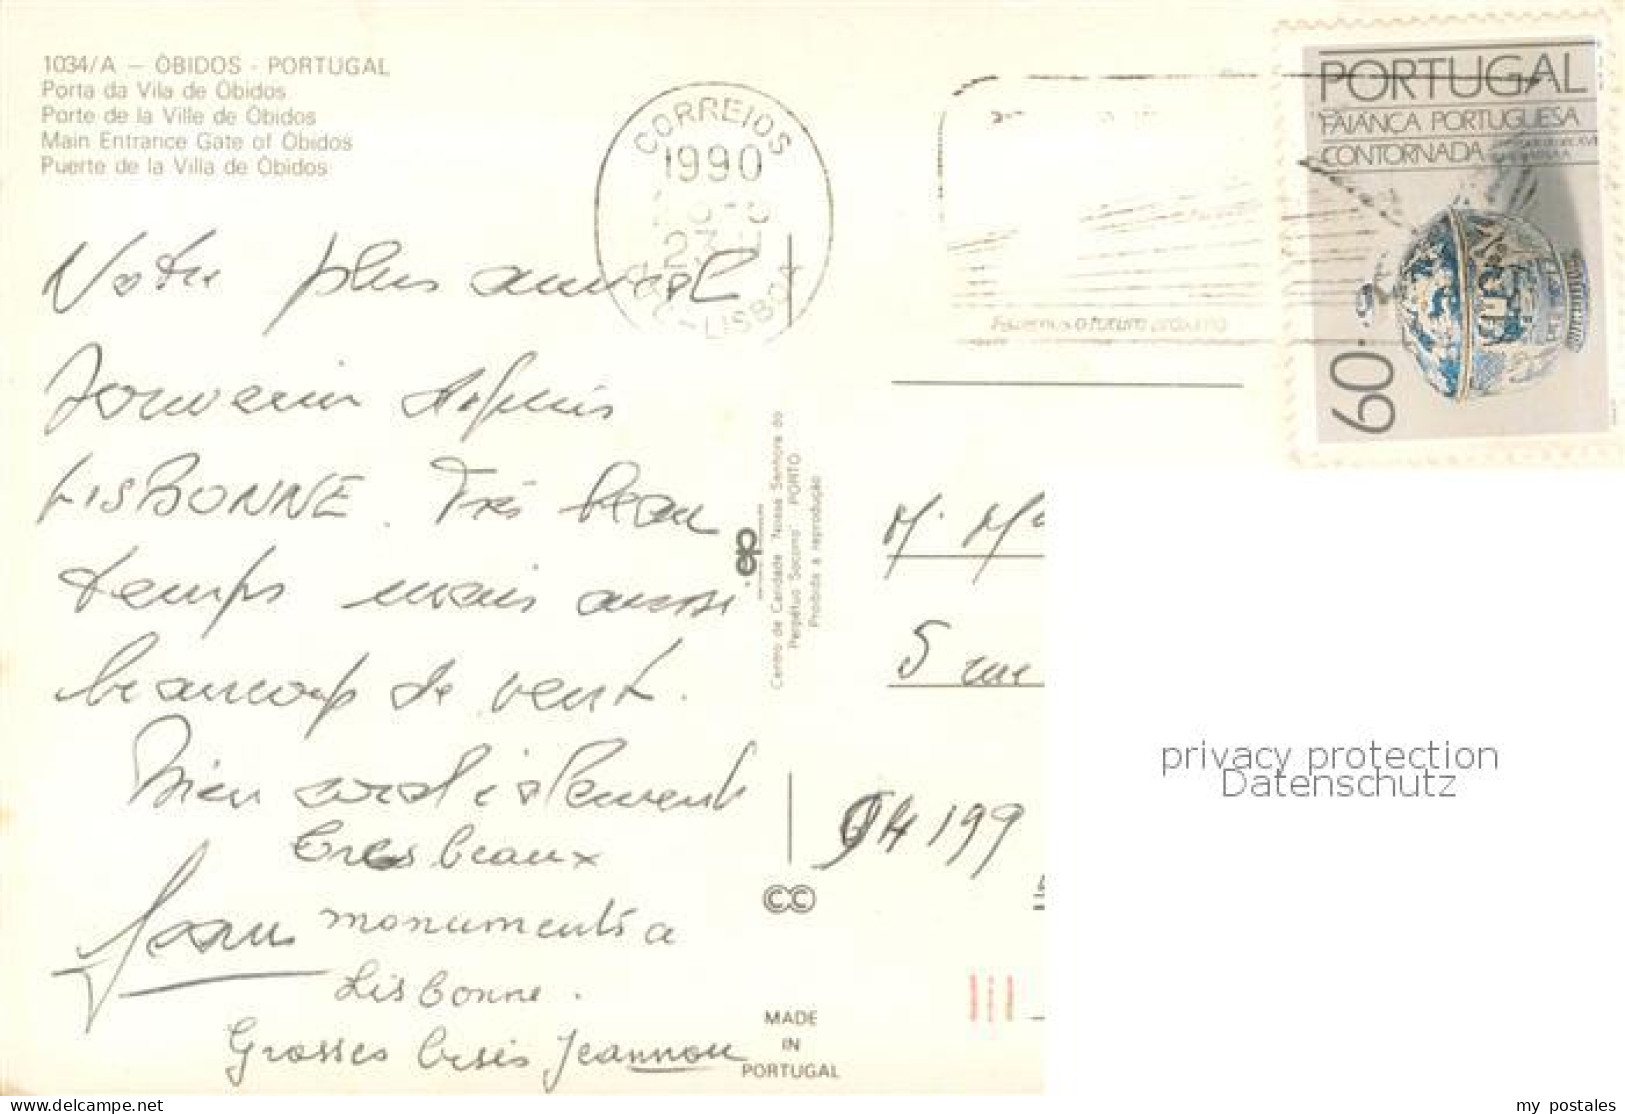 1034/A — ÓBIDOS - PORTUGAL
Porta da Vila de Óbidos
Porte de la Ville de Óbidos
Main Entrance Gate of Óbidos
Puerte de la Villa de Óbidos
CORREIOS
1990
LISBOA
PORTUGAL
FAIANÇA PORTUGUESA
CONTORNADA
60.
o futuro próximo
Notre plus amical
souvenir depuis
LISBONNE. Très beau
temps mais aussi
beaucoup de vent.
Bien cordialement
Jean
tres beaux
monuments a
Lisbonne.
Grosses bises Jeannou
Centro de Caridade 'Nossa Senhora do
Perpétuo Socorro' PORTO
Proibida a reprodução
M. Mᵉ
5 rue
94199
MADE
IN
PORTUGAL
privacy protection
Datenschutz
www.delcampe.net
my_postales